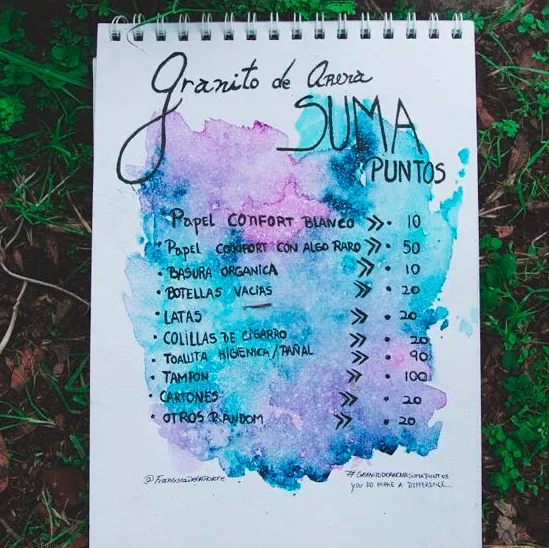 Granito de Arena
SUMA
PUNTOS
• Papel CONFORT BLANCO >> • 10
• Papel CONFORT CON ALGO RARO >> • 50
• BASURA ORGANICA >> • 10
• BOTELLAS VACIAS >> • 20
• LATAS >> • 20
• COLILLAS DE CIGARRO >> • 20
• TOALLITA HIGIENICA / PAÑAL >> • 90
• TAMPON >> • 100
• CARTONES >> • 20
• OTROS RANDOM >> • 20
#GRANITODEARENASUMAPUNTOS
YOU DO MAKE A DIFFERENCE...